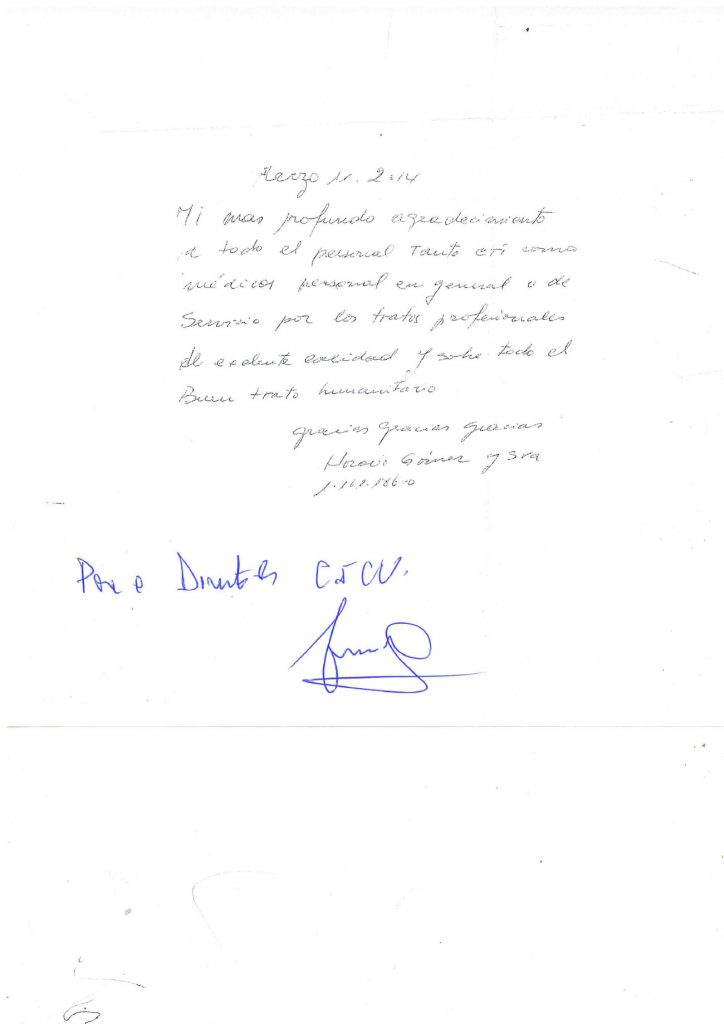 Marzo 11. 2.014
Mi mas profundo agradecimiento
a todo el personal Tanto como
médicos personal en general o de
Servicio por los tratos profesionales
de exelente calidad y sobre todo el
Buen trato humanitario
gracias gracias gracias
Horacio Gómez y Sra
Pase a